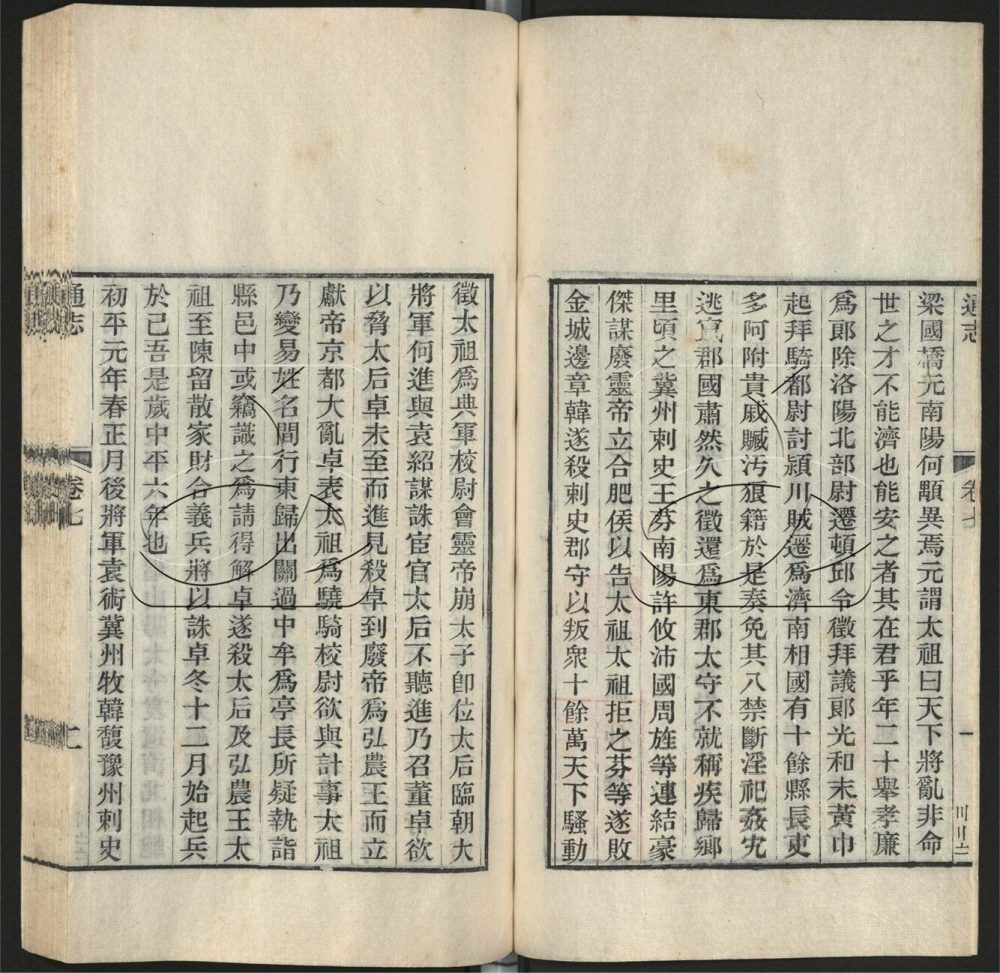 通志
卷七
一
梁國橋元南陽何顒異焉元謂太祖曰天下將亂非命
世之才不能濟也能安之者其在君乎年二十舉孝廉
爲郎除洛陽北部尉遷頓邱令徵拜議郎光和末黃巾
起拜騎都尉討潁川賊遷爲濟南相國有十餘縣長吏
多阿附貴戚贓汚狼籍於是奏免其八禁斷淫祀姦宄
逃竄郡國肅然久之徵還爲東郡太守不就稱疾歸鄉
里頃之冀州刺史王芬南陽許攸沛國周旌等連結豪
傑謀廢靈帝立合肥侯以告太祖太祖拒之芬等遂敗
金城邊章韓遂殺刺史郡守以叛衆十餘萬天下騷動
徵太祖爲典軍校尉會靈帝崩太子卽位太后臨朝大
將軍何進與袁紹謀誅宦官太后不聽進乃召董卓欲
以脅太后卓未至而進見殺卓到廢帝爲弘農王而立
獻帝京都大亂卓表太祖爲驍騎校尉欲與計事太祖
乃變易姓名間行東歸出關過中牟爲亭長所疑執詣
縣邑中或竊識之爲請得解卓遂殺太后及弘農王太
祖至陳留散家財合義兵將以誅卓冬十二月始起兵
於己吾是歲中平六年也
初平元年春正月後將軍袁術冀州牧韓馥豫州刺史
通志
卷七
二